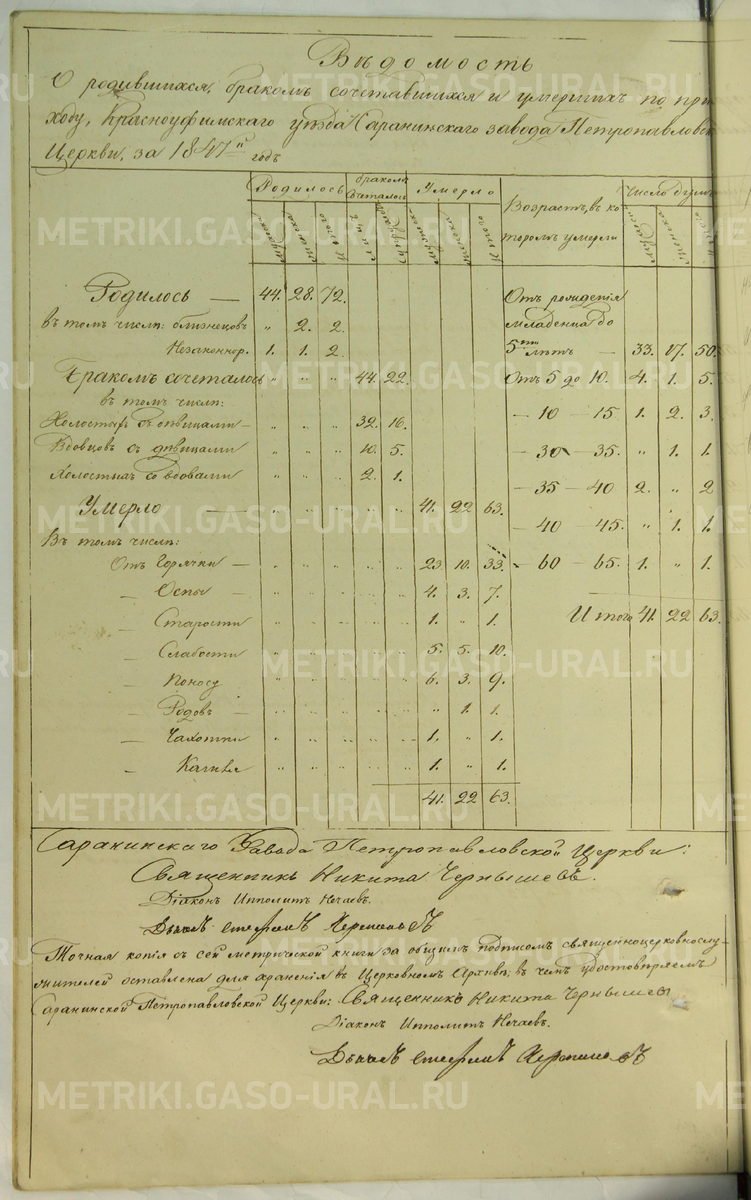 Вѣдомость
О родившихся, бракомъ сочетавшихся и умершихъ по при
ходу, Красноуфимскаго уѣзда Саранинскаго завода Петропавловск
Церкви, за 1847й годъ
Родилось бракомъ сочеталось Умерло Возрастъ, въ ко тором умерли Число душъ
мужеска женска Итого лицъ мужеска женска Итого
Родилось — 44. 28. 72. Отъ рожденія
въ томъ числѣ: близнецовъ „ 2. 2. младенца до
Незаконнор. 1. 1. 2. 5ти лѣтъ — 33. 17. 50.
Бракомъ сочеталось „ „ „ 44. 22. Отъ 5 до 10. 4. 1. 5.
въ томъ числѣ:
Холостыхъ съ дѣвицами — „ „ „ 32. 16. — 10 — 15. 1. 2. 3.
Вдовцовъ съ дѣвицами „ „ „ 10. 5. — 30 — 35. „ 1. 1.
Холостыхъ со вдовами „ „ „ 2. 1. — 35 — 40 2. „ 2
Умерло — „ „ „ „ „ 41. 22 63. — 40 — 45. „ 1. 1.
Въ томъ числѣ:
Отъ Горячки — „ „ „ „ „ 23. 10. 33. — 60 — 65. 1. „ 1.
— Оспы — „ „ „ „ „ 4. 3. 7.
— Старости „ „ „ „ „ 1. „ 1. Итого 41. 22 63.
— Слабости „ „ „ „ „ 5. 5. 10.
— Поносу „ „ „ „ „ 6. 3. 9.
— Родовъ — „ „ „ „ „ „ 1. 1.
— Чахотки „ „ „ „ „ 1. „ 1.
— Кашля „ „ „ „ „ 1. „ 1.
41. 22 63.
Саранинскаго Завода Петропавловской Церкви:
Священникъ Никита Чернышевъ.
Діаконъ Ипполитъ Нечаевъ.
Точная копія съ сей метрической книги за общимъ подписомъ священноцерковнослу-
жителей оставлена для храненія въ Церковномъ Архивѣ; въ чемъ удостовѣряемъ
Саранинской Петропавловской Церкви: Священникъ Никита Чернышевъ
Діаконъ Ипполитъ Нечаевъ.
METRIKI.GASO-URAL.RU